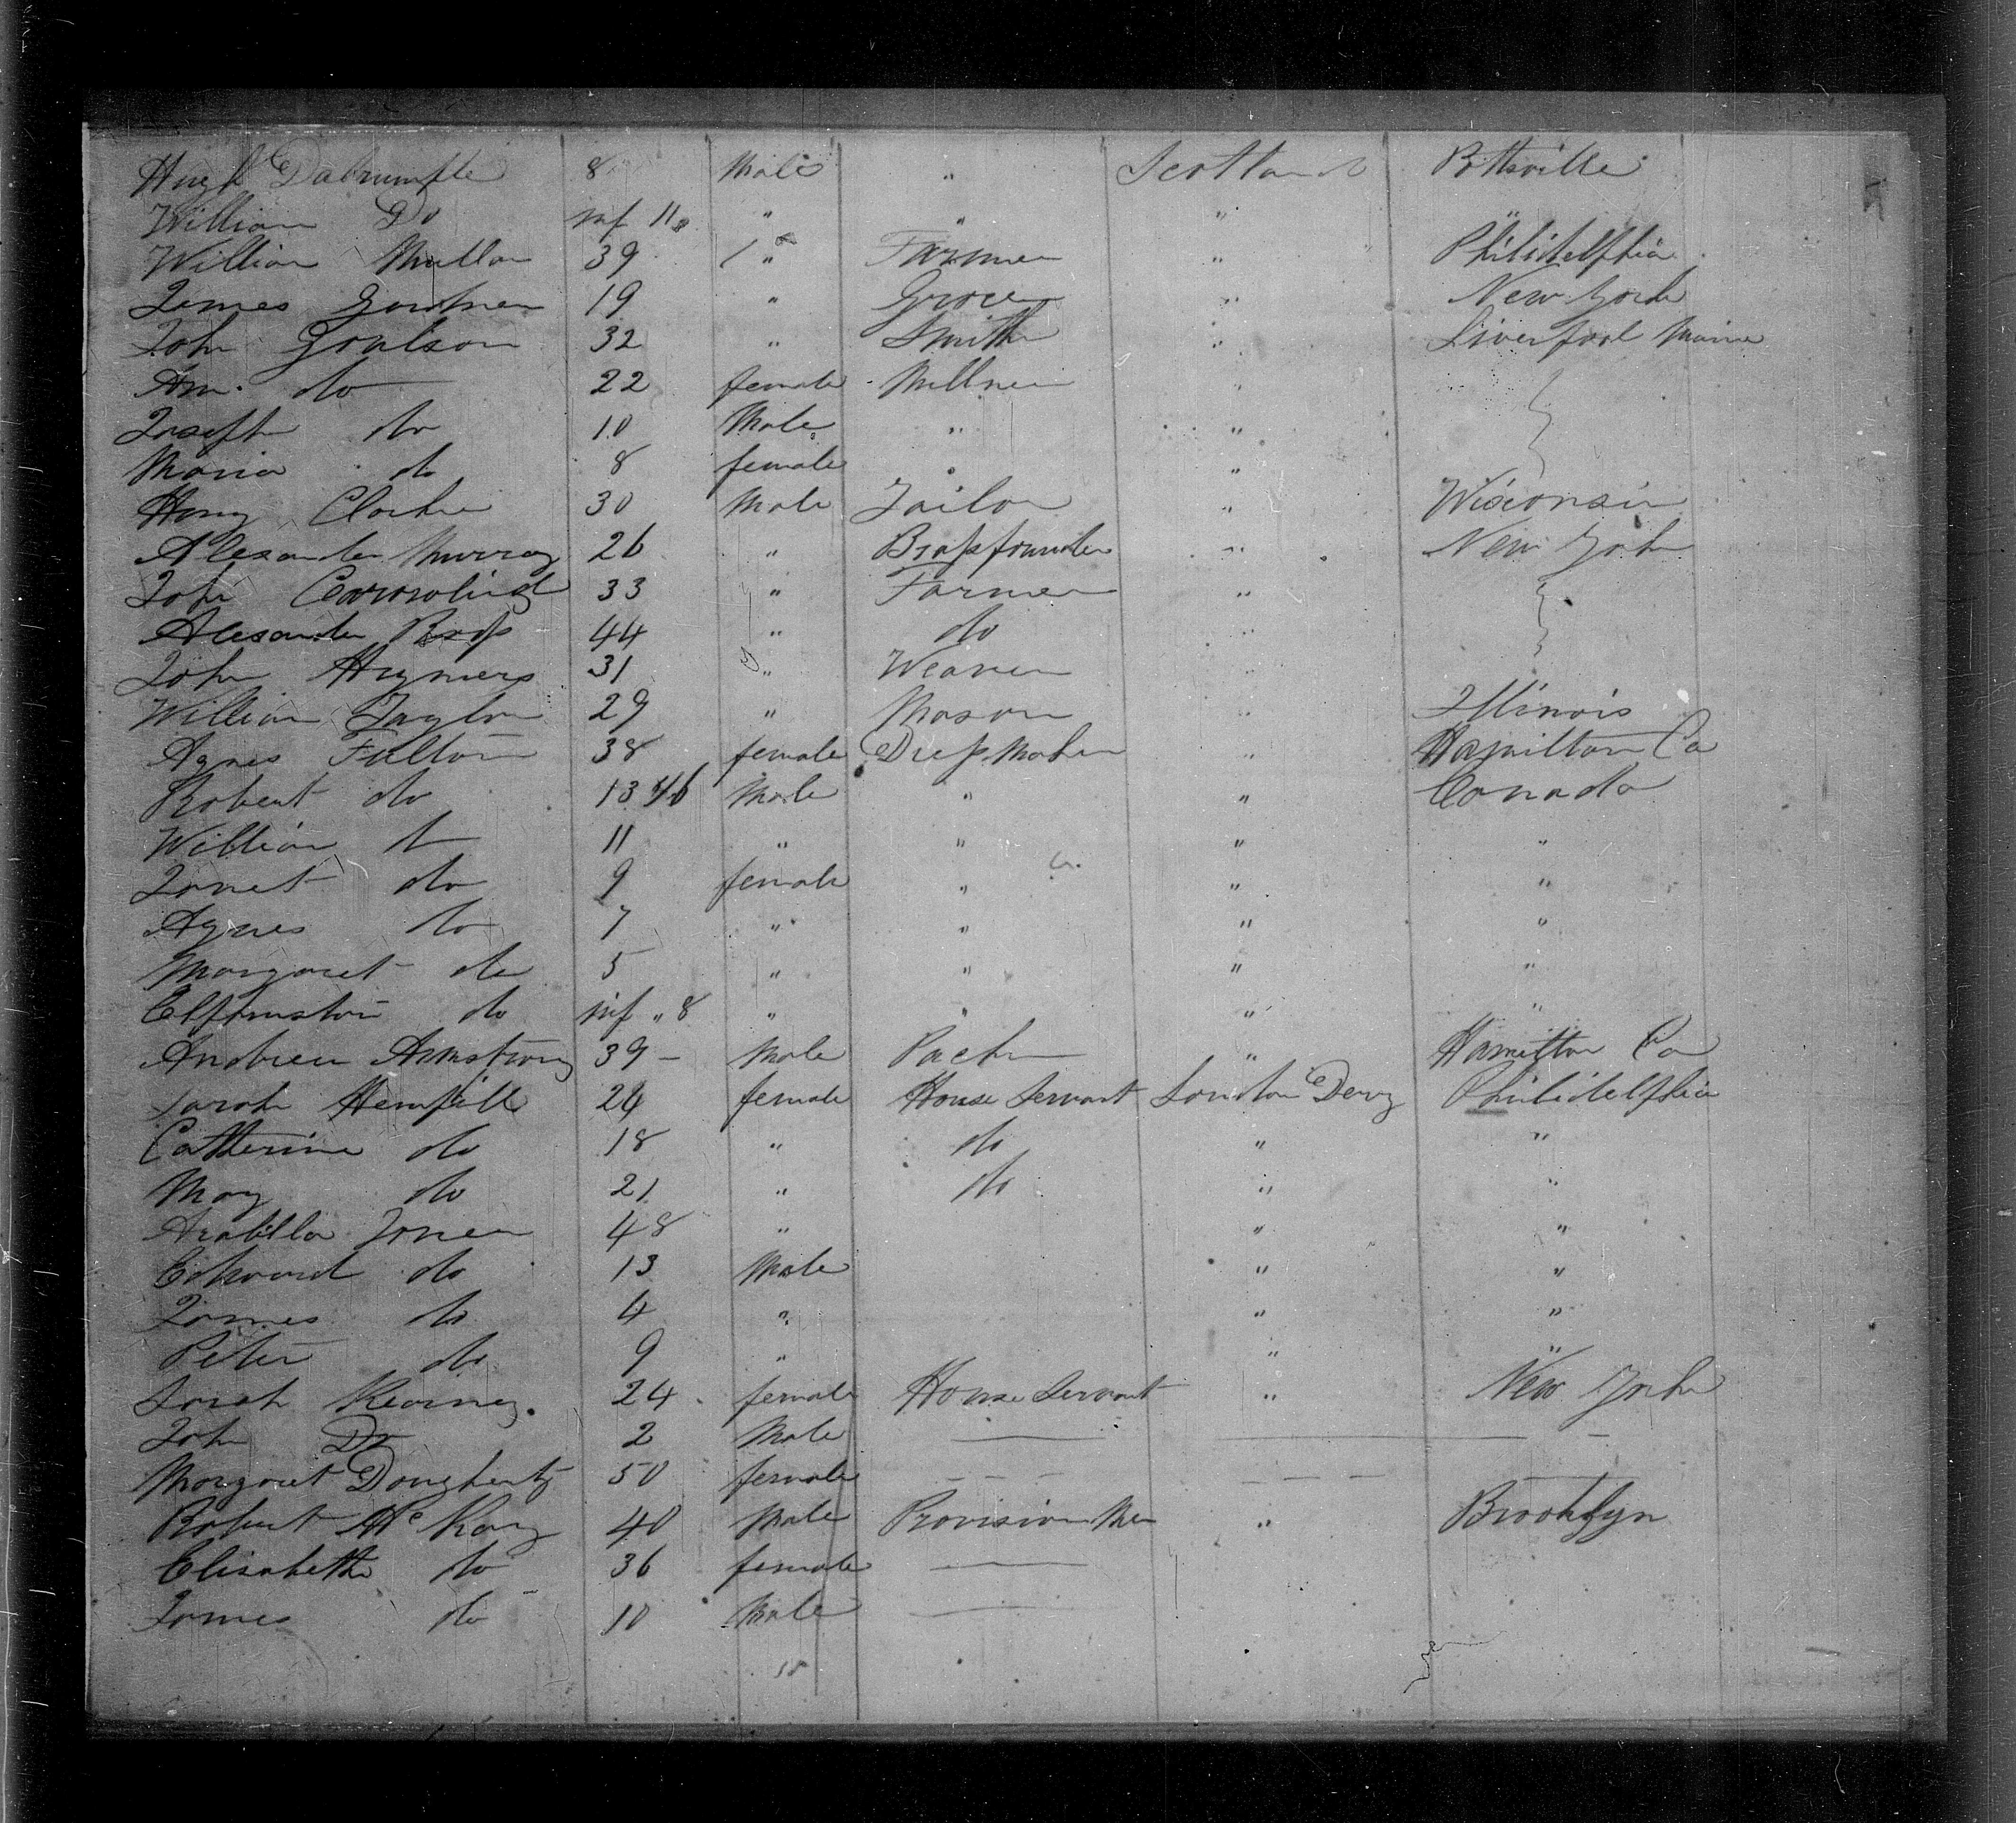 Hugh Dalrumple 8 Male " Scotland Pottsville
William Do inf 11 " " " "
William Mullan 39 " Farmer " Philidelphia
James Gardner 19 " Grocer " New York
John Goulson 32 " Smith " Liverpool Maine
Ann do 22 female Millner "
Joseph do 10 Male " "
Maria do 8 female " "
Henry Clarke 30 Male Tailor " Wisconsin
Alexander Murray 26 " Brassfounder " New York
John 33 " Farmer "
Alexander Ross 44 " do "
John Hymers 31 " Weaver "
William Taylor 29 " Mason " Illinois
Agnes Fulton 38 female Dress Maker " Hamilton Ca
Robert do 13 Male " " Canada
William do 11 " " " "
Janet do 9 female " " "
Agnes do 7 " " " "
Margaret do 5 " " " "
Elfinston do inf " 8 " " " "
Andrew Armstrong 39 Male " Hamilton Ca
Sarah Hemfill 24 female House Servant London Derry Philidelphia
Catherine do 18 " do " "
Mary do 21 " do " "
Arabella Jones 48 " " "
Edward do 13 Male " "
James do 4 " " "
Peter do 9 " " "
Sarah Kearney 24 female House Servant " New York
John Do 2 Male
Margaret Dougherty 50 female
Robert McKay 40 Male Provision Mer " Brooklyn
Elisabeth do 36 female
James do 10 Male